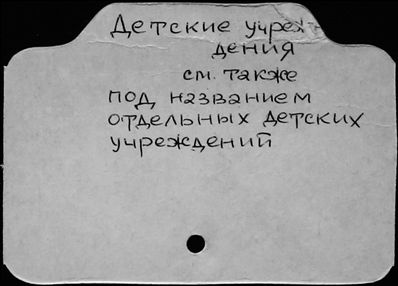 Детские учреж-
дения
см. также
под названием
отдельных детских
учреждений